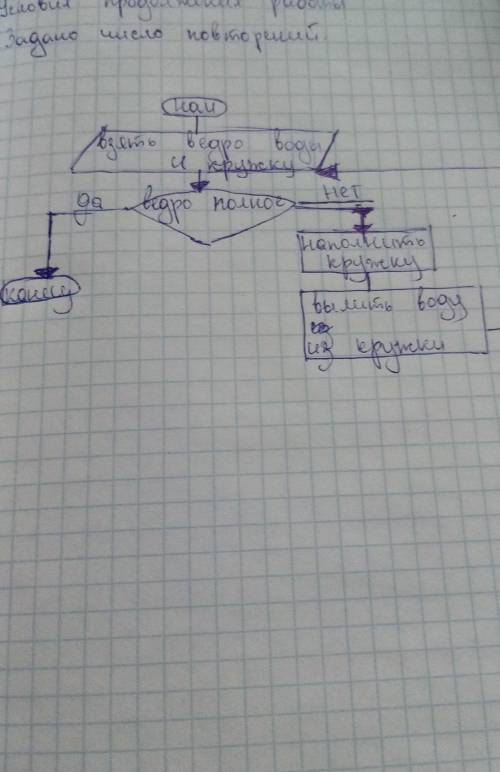 условия продолжания работы
Задано число повторений.
нач
взять ведро воды
и кружку
да
ведро полное
нет
наполнить
кружку
конец
вылить воду
из кружки